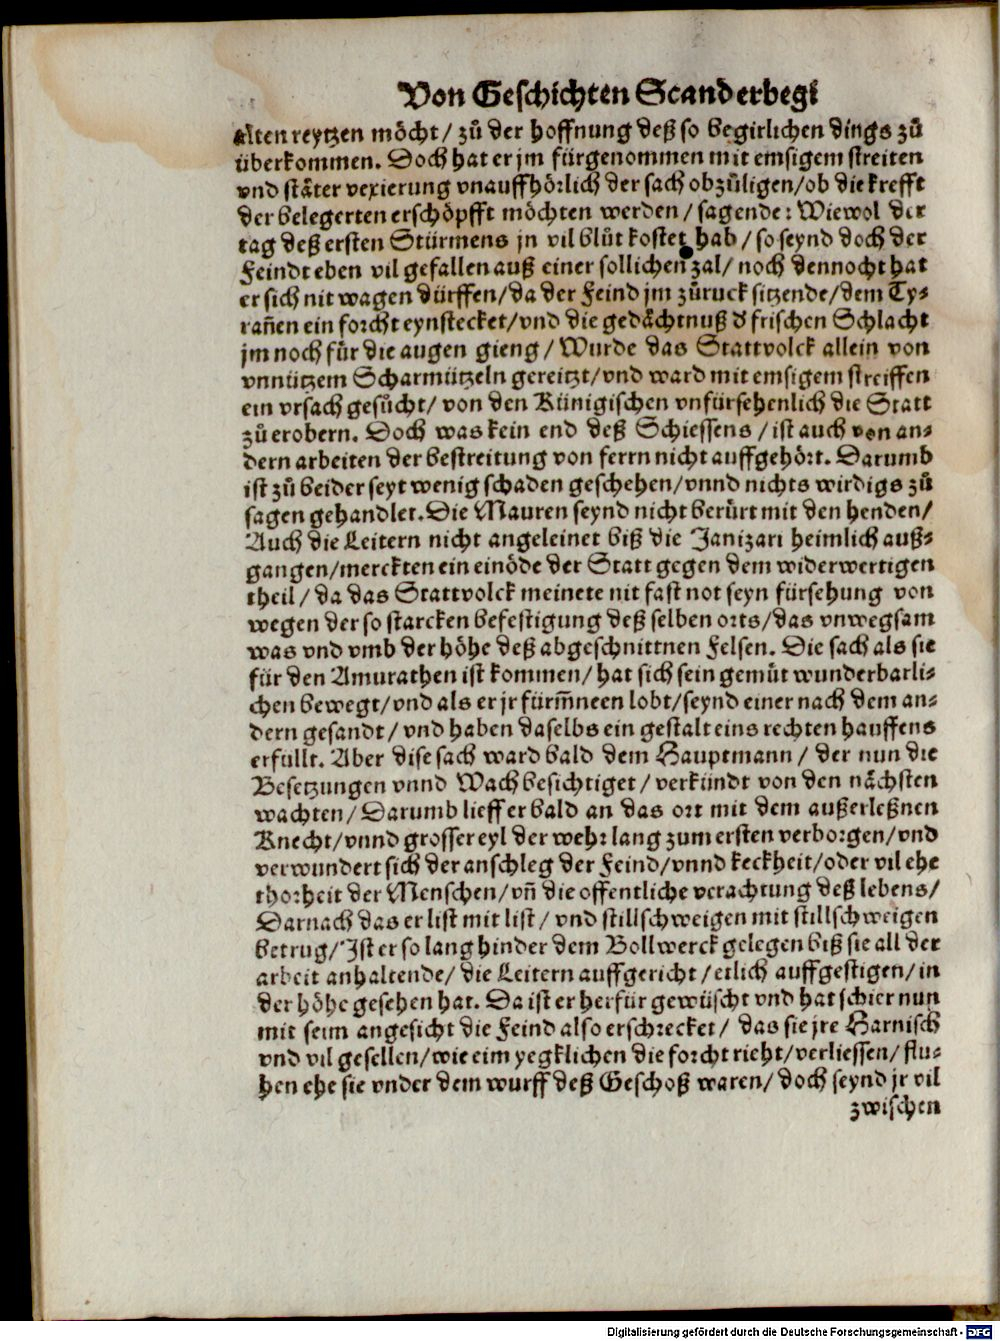 Von Geschichten Scanderbegi
alten reytzen möcht/ zů der hoffnung deß so begirlichen dings zů
überkommen. Doch hat er jm fürgenommen mit emsigem streiten
vnd stäter vexierung vnauffhörlich der sach obzůligen/ob die krefft
der belegerten erschöpfft möchten werden/ sagende: Wiewol der
tag deß ersten Stürmens jn vil blůt kostet hab/ so seynd doch der
Feindt eben vil gefallen auß einer sollichen zal/ noch dennocht hat
er sich nit wagen dürffen/da der Feind jm zůruck sitzende/dem Ty-
rañen ein forcht eynstecket/vnd die gedächtnuß d' frischen Schlacht
jm noch für die augen gieng/ Wurde das Stattvolck allein von
vnnützem Scharmützeln gereitzt/vnd ward mit emsigem streiffen
ein vrsach gesůcht/ von den Künigischen vnfürsehenlich die Statt
zů erobern. Doch was kein end deß Schiessens/ ist auch von an-
dern arbeiten der bestreitung von ferrn nicht auffgehört. Darumb
ist zů beider seyt wenig schaden geschehen/vnnd nichts wirdigs zů
sagen gehandlet. Die Mauren seynd nicht berürt mit den henden/
Auch die Leitern nicht angeleinet biß die Janizari heimlich auß-
gangen/merckten ein einöde der Statt gegen dem widerwertigen
theil/ da das Stattvolck meinete nit fast not seyn fürsehung von
wegen der so starcken befestigung deß selben orts/das vnwegsam
was vnd vmb der höhe deß abgeschnittnen Felsen. Die sach als sie
für den Amurathen ist kommen/ hat sich sein gemüt wunderbarli-
chen bewegt/vnd als er jr fürm̃neen lobt/seynd einer nach dem an-
dern gesandt/ vnd haben daselbs ein gestalt eins rechten hauffens
erfüllt. Aber dise sach ward bald dem Hauptmann/ der nun die
Besetzungen vnnd Wach besichtiget/ verkündt von den nächsten
wachten/ Darumb lieff er bald an das ort mit dem außerleßnen
Knecht/vnnd grosser eyl der wehr lang zum ersten verborgen/vnd
verwundert sich der anschleg der Feind/vnnd keckheit/oder vil ehe
thorheit der Menschen/vñ die offentliche verachtung deß lebens/
Darnach das er list mit list/ vnd stillschweigen mit stillschweigen
betrug/ Ist er so lang hinder dem Bollwerck gelegen biß sie all der
arbeit anhaltende/ die Leitern auffgericht/etlich auffgestigen/in
der höhe gesehen hat. Da ist er herfür gewüscht vnd hat schier nun
mit seim angesicht die Feind also erschrecket/ das sie jre Harnisch
vnd vil gesellen/wie eim yegklichen die forcht richt/verliessen/ flu-
hen ehe sie vnder dem wurff deß Geschoß waren/ doch seynd jr vil
zwischen
Digitalisierung gefördert durch die Deutsche Forschungsgemeinschaft - DFG